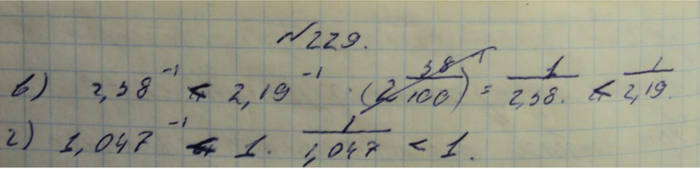 №229.
в) 2,38⁻¹ < 2,19⁻¹ · (2 38/100)⁻¹ = 1/2,38. < 1/2,19.
г) 1,047⁻¹ < 1. 1/1,047 < 1.